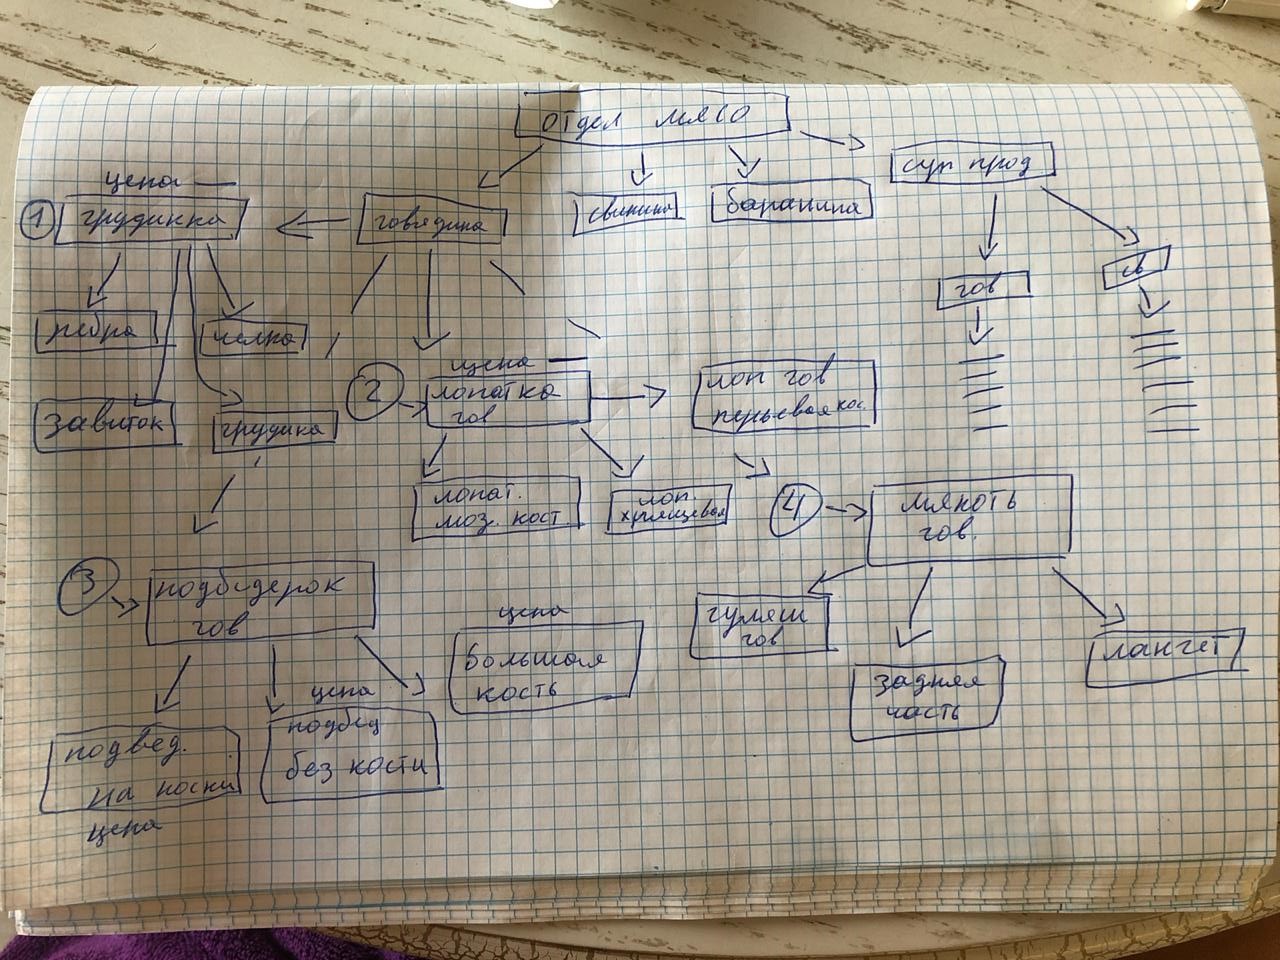 отдел мясо
суп прод
цена —
1 грудинка
говядина
свинина
баранина
гов
св
ребра
челка
завиток
грудинка
цена —
2 лопатка
гов
лоп гов
перьевая кос.
лопат.
моз. кост
лоп.
хрящевая
4 мякоть
гов.
3 подбедерок
гов
цена
большая
кость
гуляш
гов
лангет
задняя
часть
цена
подбед
без кости
подбед.
на коски
цена